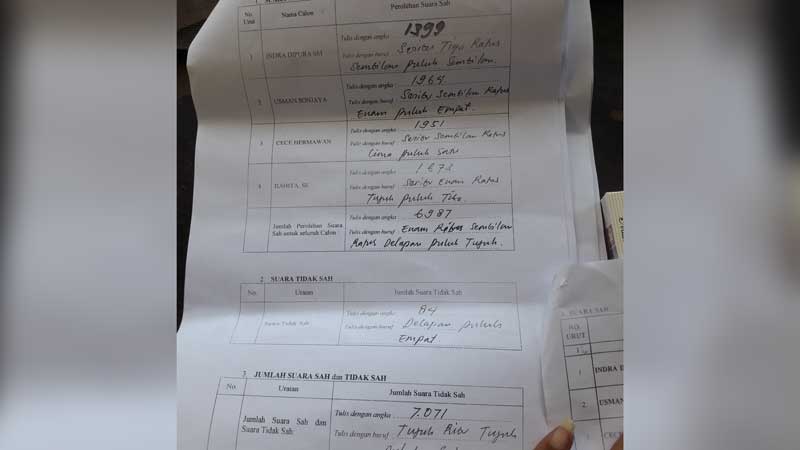 No. Urut Nama Calon Perolehan Suara Sah
1 INDRA DIPURA SM
Tulis dengan angka : 1399
Tulis dengan huruf : Seribu Tiga Ratus
Sembilan puluh Sembilan.
2 USMAN SONJAYA
Tulis dengan angka : 1964
Tulis dengan huruf : Seribu Sembilan Ratus
Enam puluh Empat.
3 CECE HERMAWAN
Tulis dengan angka : 1951
Tulis dengan huruf : Seribu Sembilan Ratus
Lima puluh Satu
4
Tulis dengan angka : 1673
Tulis dengan huruf : Seribu Enam Ratus
Tujuh puluh Tiga.
Jumlah Perolehan Suara
Sah untuk seluruh Calon
Tulis dengan angka : 6987
Tulis dengan huruf : Enam Ribu Sembilan
Ratus Delapan puluh Tujuh.
2. SUARA TIDAK SAH
No. Uraian Jumlah Suara Tidak Sah
Suara Tidak Sah
Tulis dengan angka : 84
Tulis dengan huruf : Delapan puluh
Empat
3. JUMLAH SUARA SAH dan TIDAK SAH
No. Uraian Jumlah Suara Tidak Sah
Jumlah Suara Sah dan
Suara Tidak Sah
Tulis dengan angka : 7.071
Tulis dengan huruf : Tujuh Ribu Tujuh
SUARA SAH
NO.
URUT
1
1 INDRA D
2 USMAN
CECE